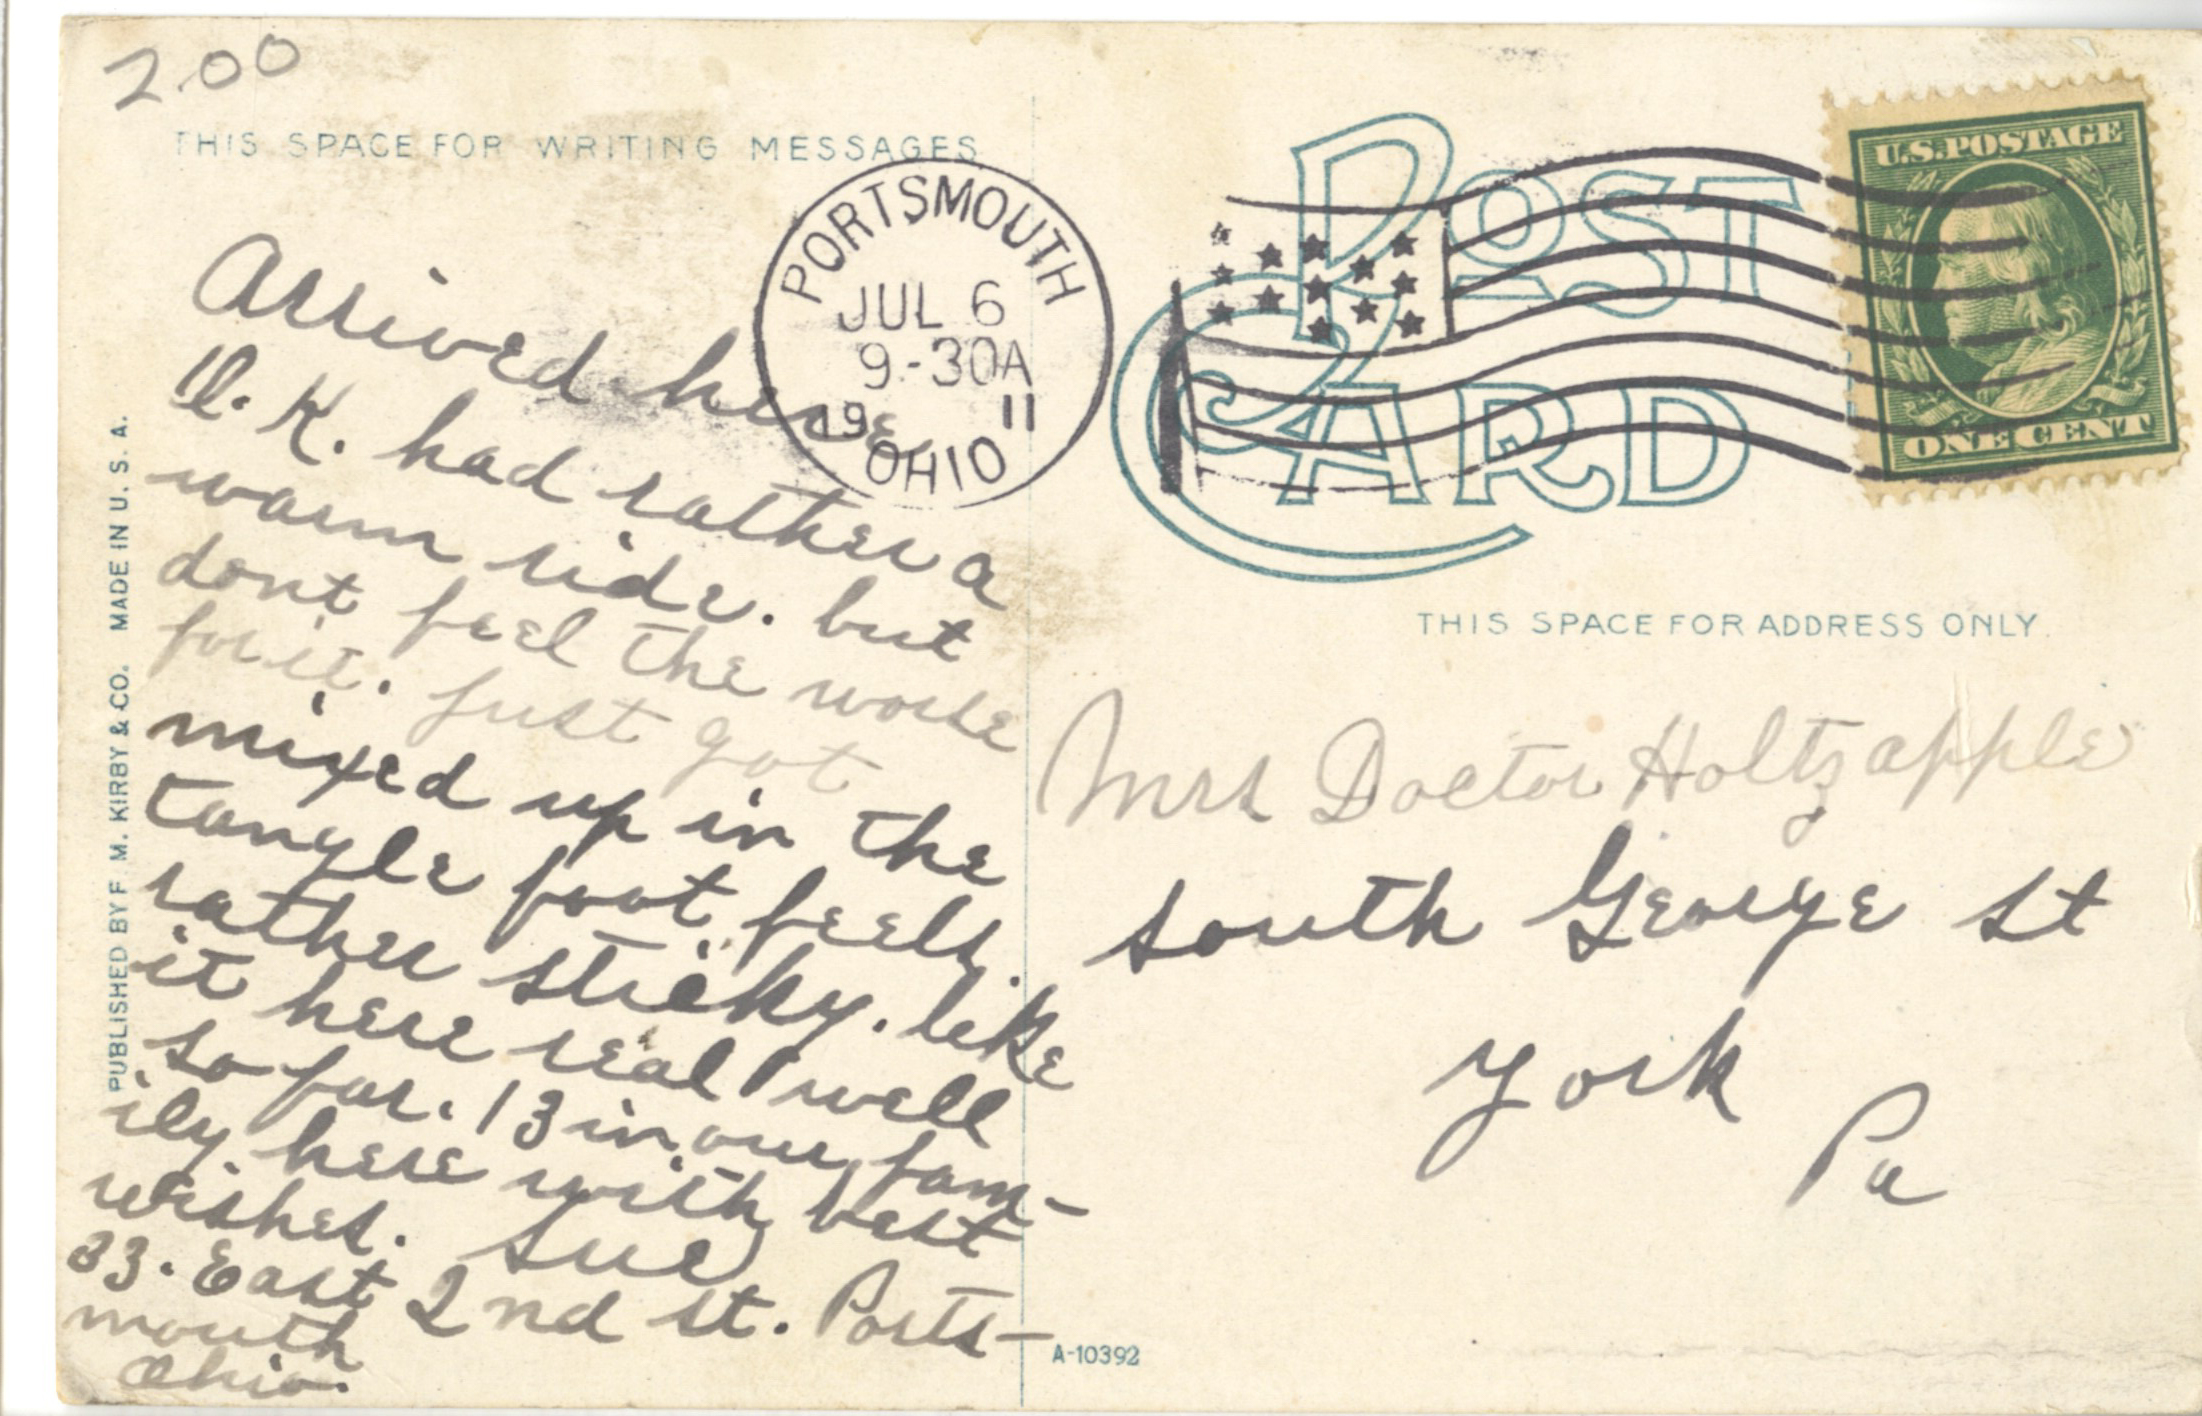 2.00
THIS SPACE FOR WRITING MESSAGES
Arrived here
O. K. had rather a
warm ride. but
dont feel the worse
for it. Just got
mixed up in the
tangle foot feels
rather sticky. like
it here real well
so far. 13 in our fam-
ily here with best
wishes. Sue
33. East 2nd st. Ports-
mouth
Ohio.
PUBLISHED BY F. M. KIRBY & CO. MADE IN U. S. A.
PORTSMOUTH
JUL 6
9-30A
19 11
OHIO
POST
CARD
U.S.POSTAGE
ONE CENT
THIS SPACE FOR ADDRESS ONLY.
Mrs Doctor Holtzapple
south George st
York
Pa
A-10392